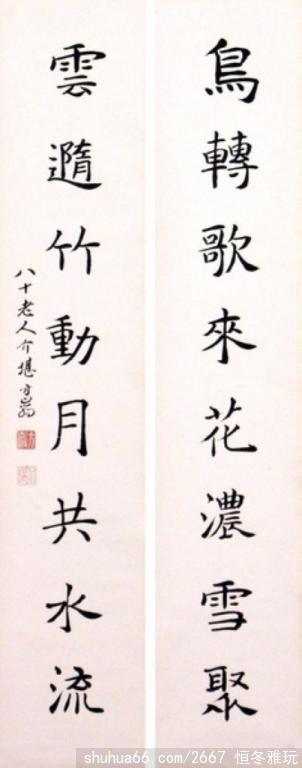 鳥轉歌來花濃雪聚
雲遹竹動月共水流
八十老人介堪方岩
shuhua66.com/2667 恒冬雅玩